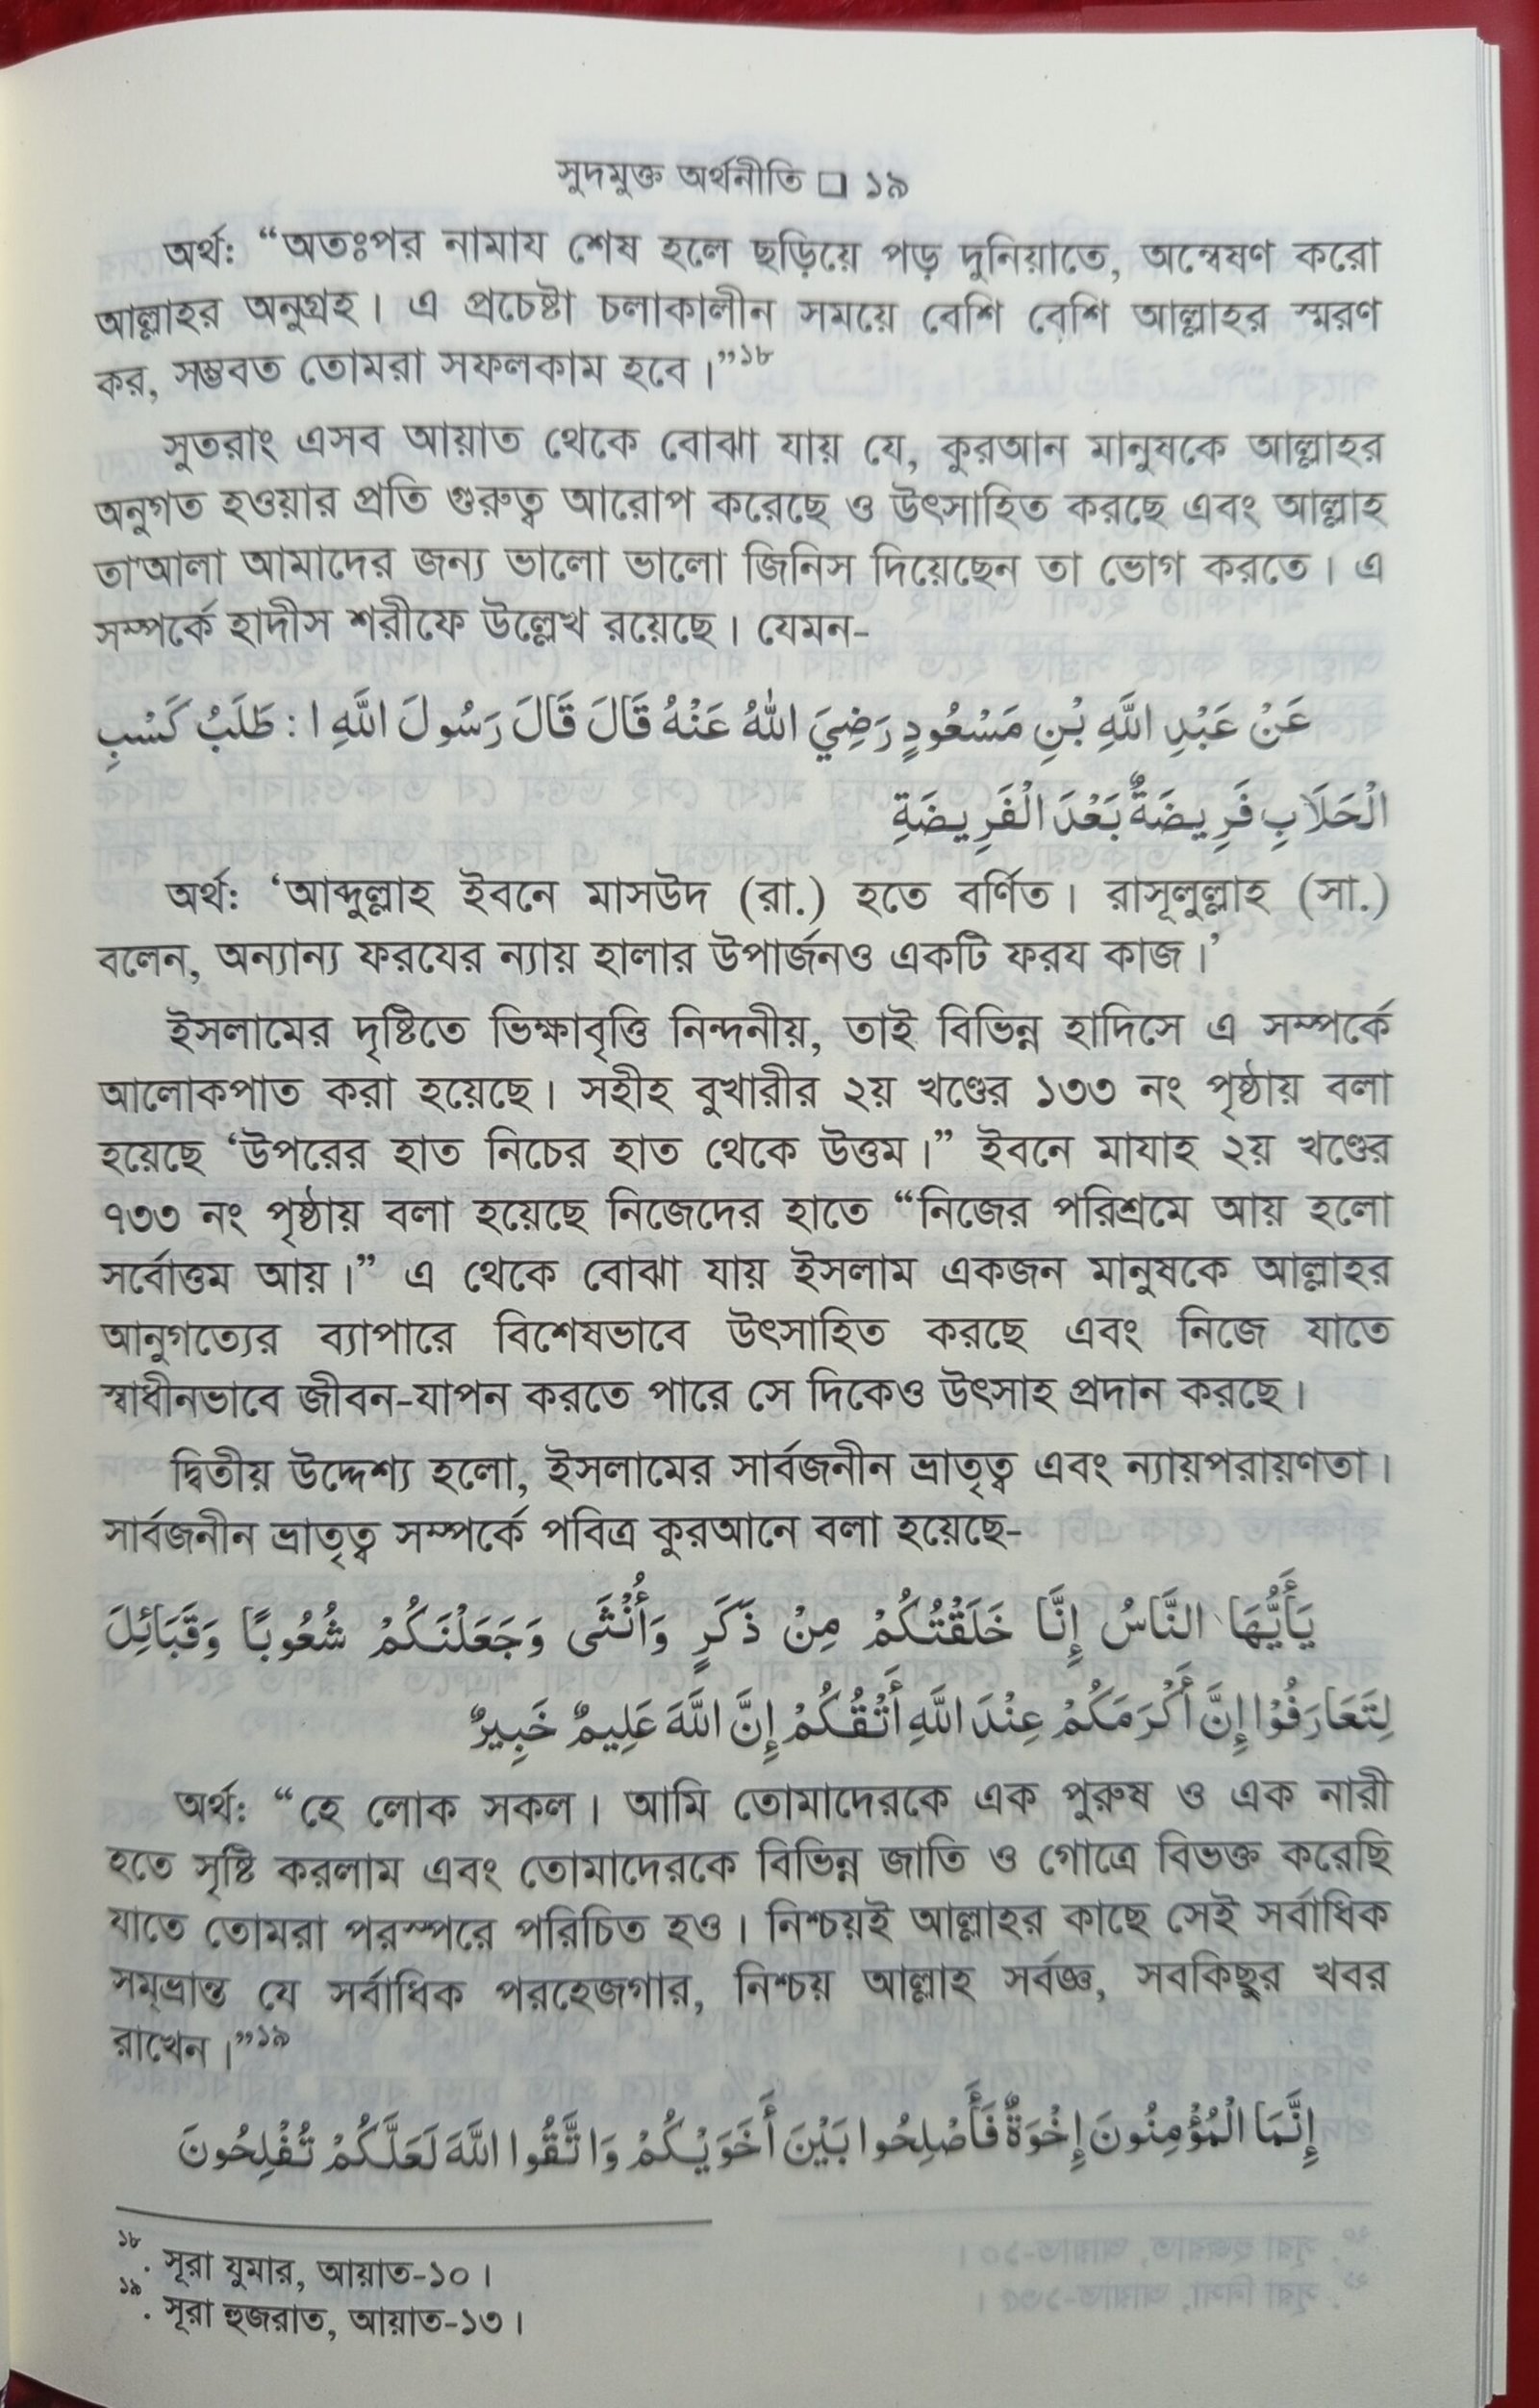 সুদমুক্ত অর্থনীতি □ ১৯
অর্থ: “অতঃপর নামায শেষ হলে ছড়িয়ে পড় দুনিয়াতে, অন্বেষণ করো
আল্লাহর অনুগ্রহ। এ প্রচেষ্টা চলাকালীন সময়ে বেশি বেশি আল্লাহর স্মরণ
কর, সম্ভবত তোমরা সফলকাম হবে।”১৮
সুতরাং এসব আয়াত থেকে বোঝা যায় যে, কুরআন মানুষকে আল্লাহর
অনুগত হওয়ার প্রতি গুরুত্ব আরোপ করেছে ও উৎসাহিত করছে এবং আল্লাহ
তা'আলা আমাদের জন্য ভালো ভালো জিনিস দিয়েছেন তা ভোগ করতে। এ
সম্পর্কে হাদীস শরীফে উল্লেখ রয়েছে। যেমন-
عَنْ عَبْدِ اللَّهِ بْنِ مَسْعُودٍ رَضِيَ اللهُ عَنْهُ قَالَ قَالَ رَسُولَ اللَّهِ ا : طَلَبُ كَسْبِ
الْحَلَابِ فَرِيضَةٌ بَعْدَ الْفَرِيضَةِ
অর্থ: ‘আব্দুল্লাহ ইবনে মাসউদ (রা.) হতে বর্ণিত। রাসূলুল্লাহ (সা.)
বলেন, অন্যান্য ফরযের ন্যায় হালার উপার্জনও একটি ফরয কাজ।’
ইসলামের দৃষ্টিতে ভিক্ষাবৃত্তি নিন্দনীয়, তাই বিভিন্ন হাদিসে এ সম্পর্কে
আলোকপাত করা হয়েছে। সহীহ বুখারীর ২য় খণ্ডের ১৩৩ নং পৃষ্ঠায় বলা
হয়েছে ‘উপরের হাত নিচের হাত থেকে উত্তম।” ইবনে মাযাহ ২য় খণ্ডের
৭৩৩ নং পৃষ্ঠায় বলা হয়েছে নিজেদের হাতে “নিজের পরিশ্রমে আয় হলো
সর্বোত্তম আয়।” এ থেকে বোঝা যায় ইসলাম একজন মানুষকে আল্লাহর
আনুগত্যের ব্যাপারে বিশেষভাবে উৎসাহিত করছে এবং নিজে যাতে
স্বাধীনভাবে জীবন-যাপন করতে পারে সে দিকেও উৎসাহ প্রদান করছে।
দ্বিতীয় উদ্দেশ্য হলো, ইসলামের সার্বজনীন ভ্রাতৃত্ব এবং ন্যায়পরায়ণতা।
সার্বজনীন ভ্রাতৃত্ব সম্পর্কে পবিত্র কুরআনে বলা হয়েছে-
يَأَيُّهَا النَّاسُ إِنَّا خَلَقْتُكُمْ مِنْ ذَكَرٍ وَأُنْثَى وَجَعَلْنَكُمْ شُعُوبًا وَقَبَائِلَ
لِتَعَارَفُوْا إِنَّ أَكْرَمَكُمْ عِنْدَ اللَّهِ أَتْقُكُمْ إِنَّ اللَّهَ عَلِيمٌ خَبِيرٌ
অর্থ: “হে লোক সকল। আমি তোমাদেরকে এক পুরুষ ও এক নারী
হতে সৃষ্টি করলাম এবং তোমাদেরকে বিভিন্ন জাতি ও গোত্রে বিভক্ত করেছি
যাতে তোমরা পরস্পরে পরিচিত হও। নিশ্চয়ই আল্লাহর কাছে সেই সর্বাধিক
সম্ভ্রান্ত যে সর্বাধিক পরহেজগার, নিশ্চয় আল্লাহ সর্বজ্ঞ, সবকিছুর খবর
রাখেন।”১৯
إِنَّمَا الْمُؤْمِنُونَ إِخْوَةٌ فَأَصْلِحُوا بَيْنَ أَخَوَيْكُمْ وَاتَّقُوا اللَّهَ لَعَلَّكُمْ تُفْلِحُونَ
১৮. সূরা যুমার, আয়াত-১০।
১৯. সূরা হুজরাত, আয়াত-১৩।